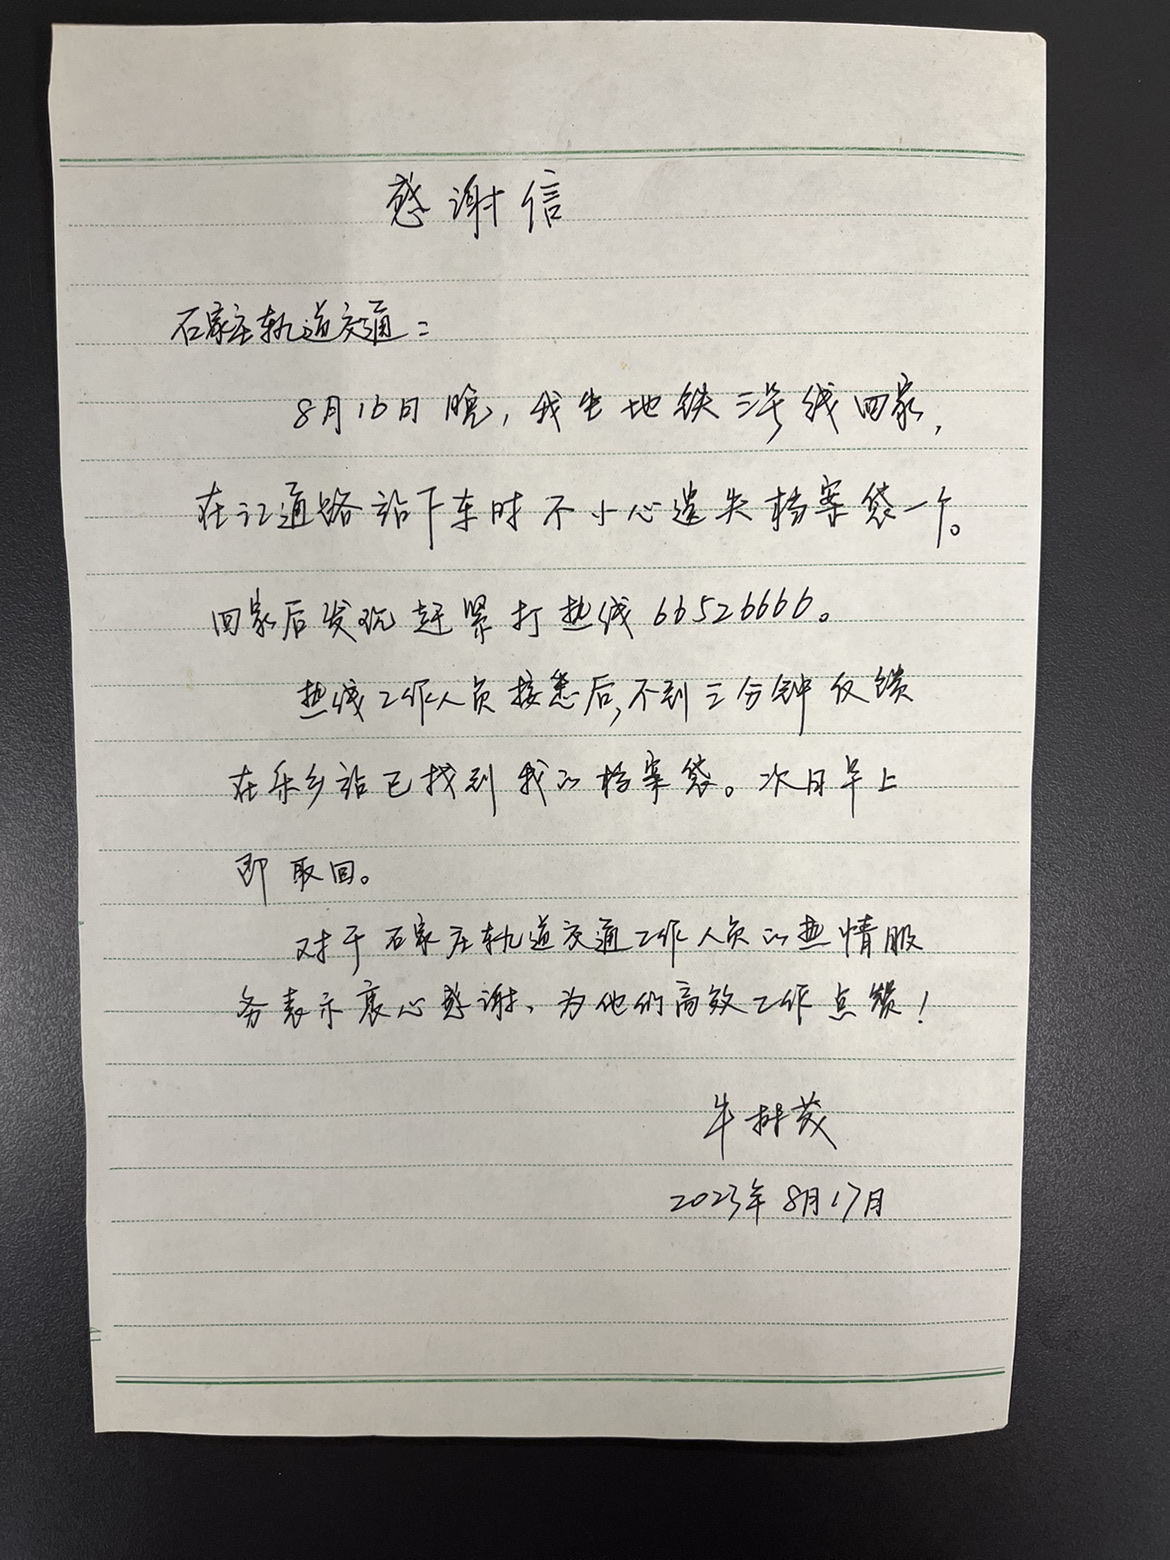 感谢信
石家庄轨道交通：
8月16日晚，我坐地铁三号线回家，
在汇通路站下车时不小心遗失档案袋一个。
回家后发现赶紧打热线66526666。
热线工作人员接悉后，不到三分钟反馈
在乐乡站已找到我的档案袋。次日早上
即取回。
对于石家庄轨道交通工作人员的热情服
务表示衷心感谢，为他们高效工作点赞！
牛茂
2023年8月17日